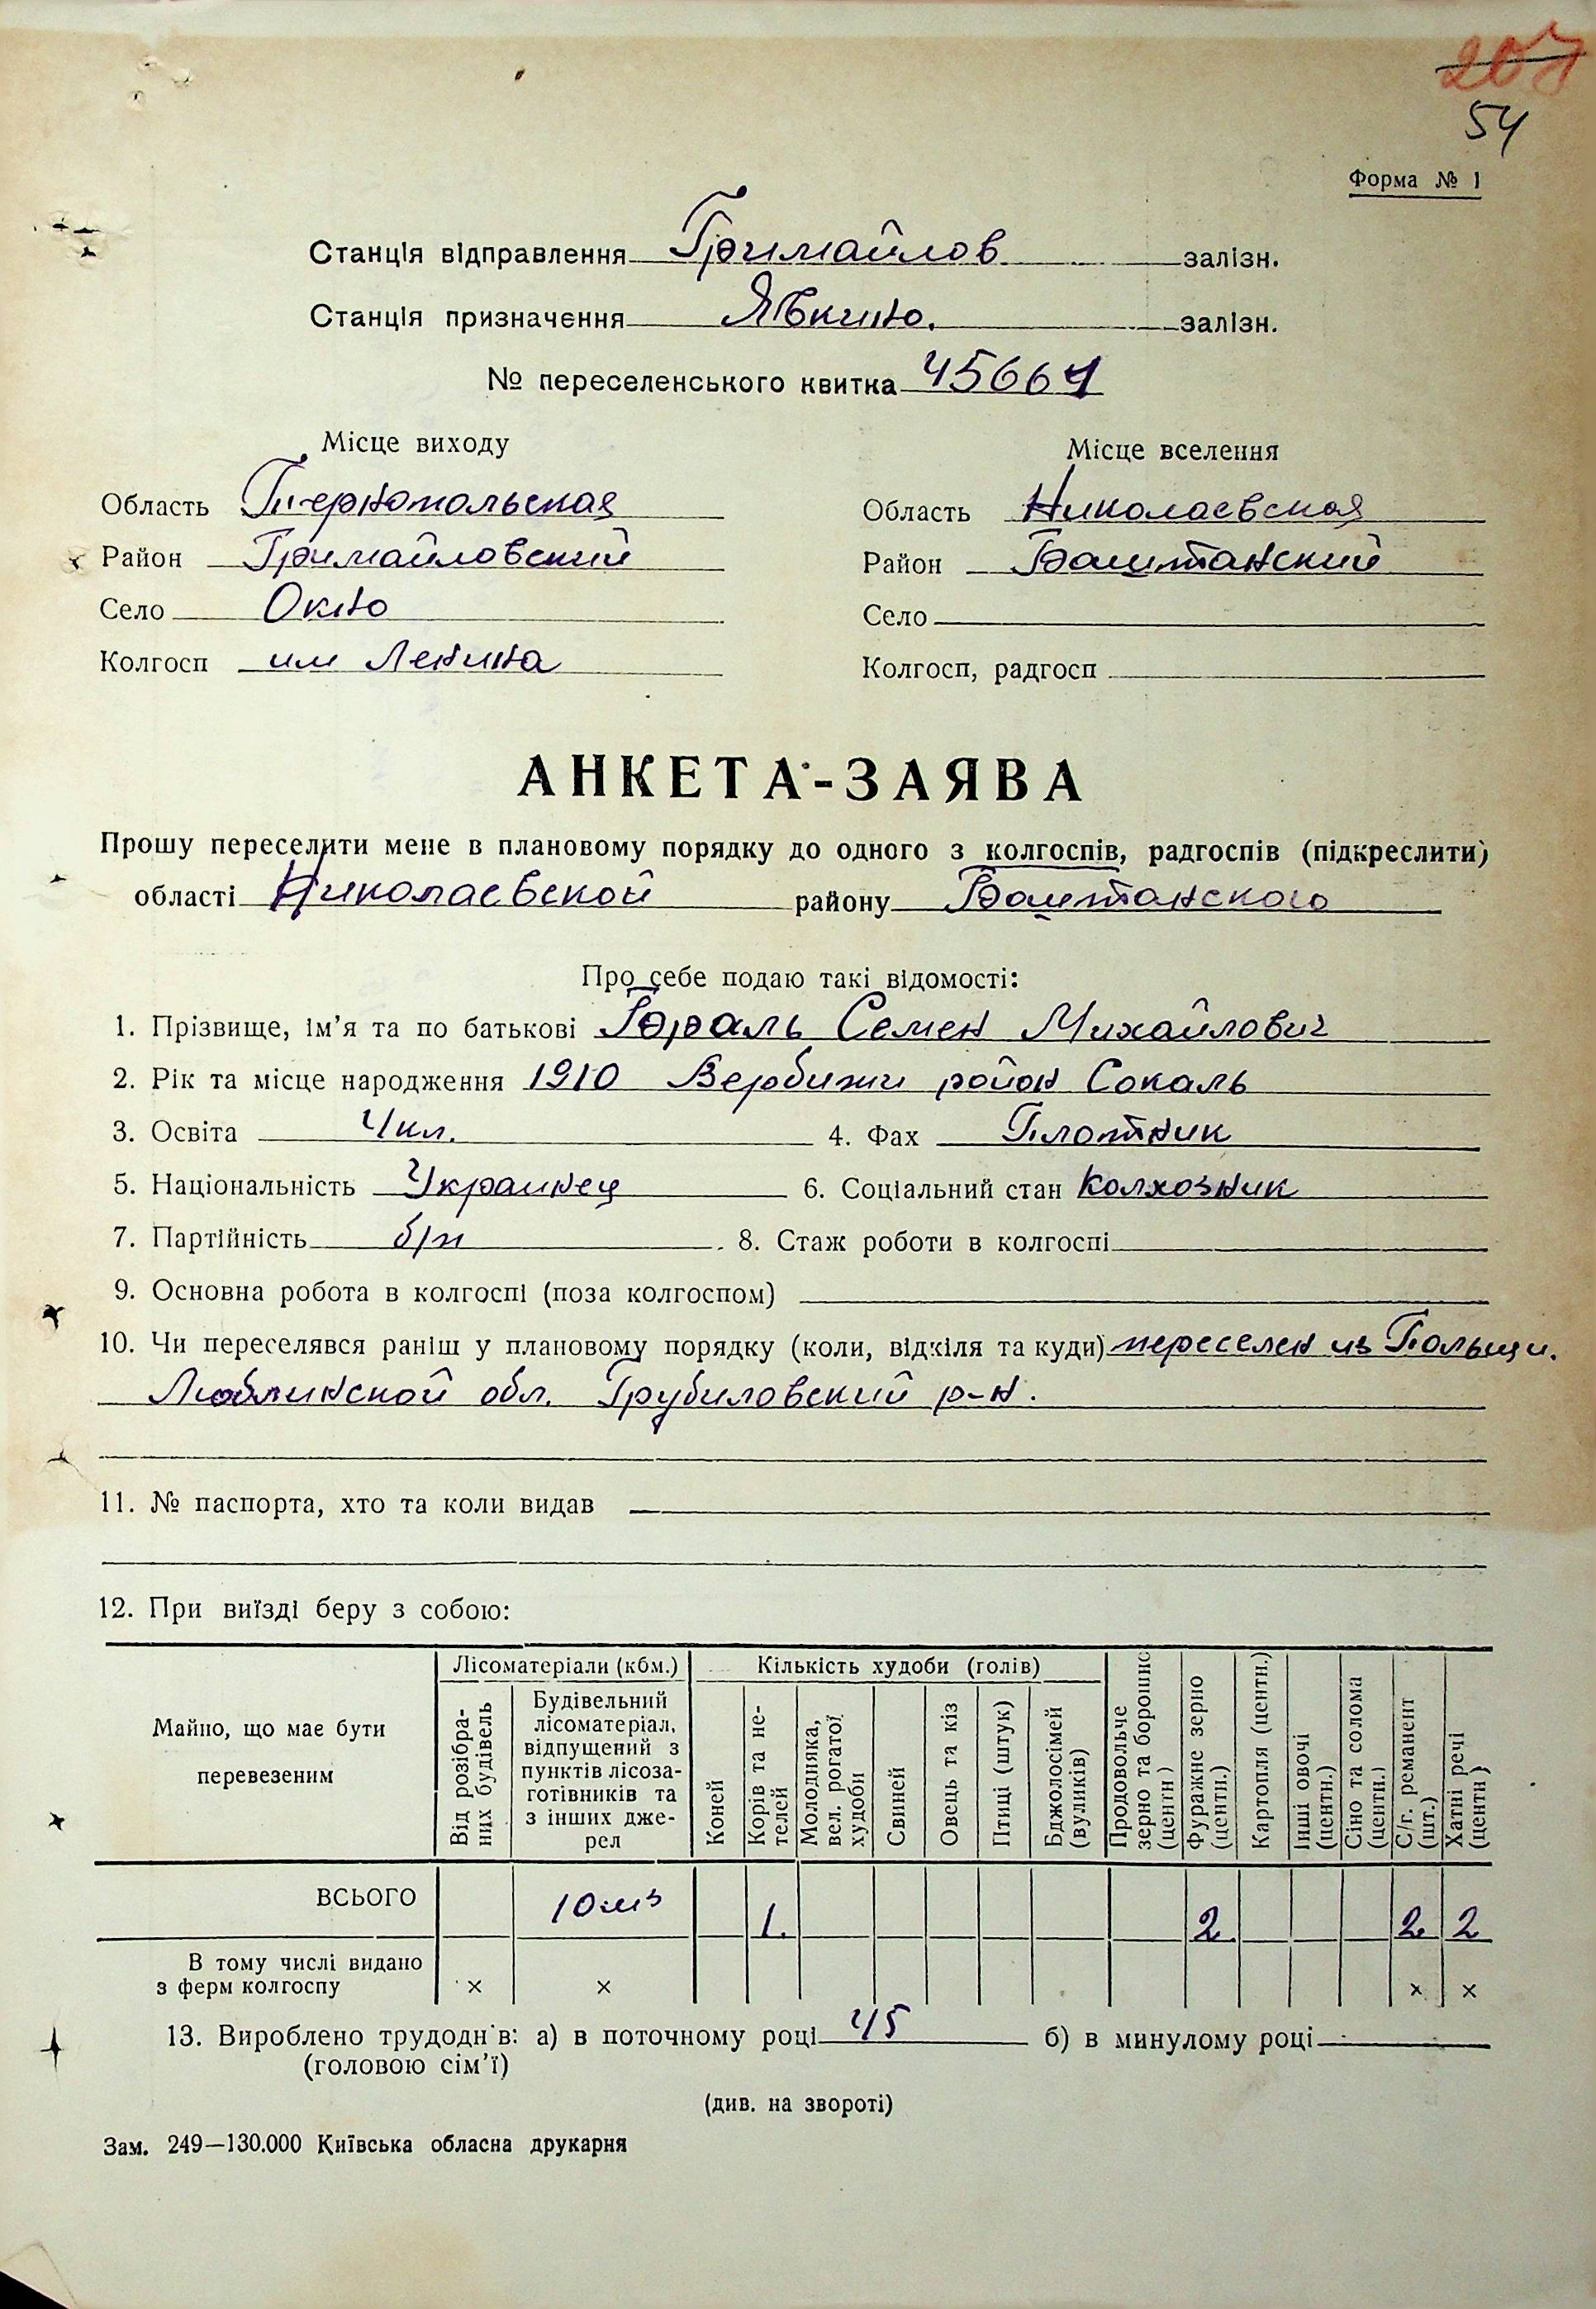 207
54
Форма № 1
Станція відправлення Гримайлов залізн.
Станція призначення Явкино. залізн.
№ переселенського квитка 45664
Місце виходу Місце вселення
Область Тернопольская Область Николаевская
Район Гримайловский Район Баштанский
Село Окно Село
Колгосп им Ленина Колгосп, радгосп
АНКЕТА-ЗАЯВА
Прошу переселити мене в плановому порядку до одного з колгоспів, радгоспів (підкреслити)
області Николаевской району Баштанского
Про себе подаю такі відомості:
1. Прізвище, ім’я та по батькові Гораль Семен Михайлович
2. Рік та місце народження 1910 Вербижи район Сокаль
3. Освіта 4 кл. 4. Фах Плотник
5. Національність Украинец 6. Соціальний стан Колхозник
7. Партійність б/п 8. Стаж роботи в колгоспі
9. Основна робота в колгоспі (поза колгоспом)
10. Чи переселявся раніш у плановому порядку (коли, відкіля та куди) переселен из Польщи.
Люблинской обл. Грубиловский р-н.
11. № паспорта, хто та коли видав
12. При виїзді беру з собою:
Майно, що має бути перевезеним
Лісоматеріали (кбм.)
Від розібраних будівель
Будівельний лісоматеріал, відпущений з пунктів лісозаготівників та з інших джерел
Кількість худоби (голів)
Коней
Корів та нетелей
Молодняка, вел. рогатої худоби
Свиней
Овець та кіз
Птиці (штук)
Бджолосімей (вуликів)
Продовольче зерно та борошно (центн)
Фуражне зерно (центн.)
Картопля (центн.)
Інші овочі (центн.)
Сіно та солома (центн.)
С/г. реманент (шт.)
Хатні речі (центн)
ВСЬОГО 10 м³ 1. 2 2 2
В тому числі видано
з ферм колгоспу × × × ×
13. Вироблено трудоднів: а) в поточному році 45 б) в минулому році -
(головою сім’ї)
(див. на звороті)
Зам. 249—130.000 Київська обласна друкарня